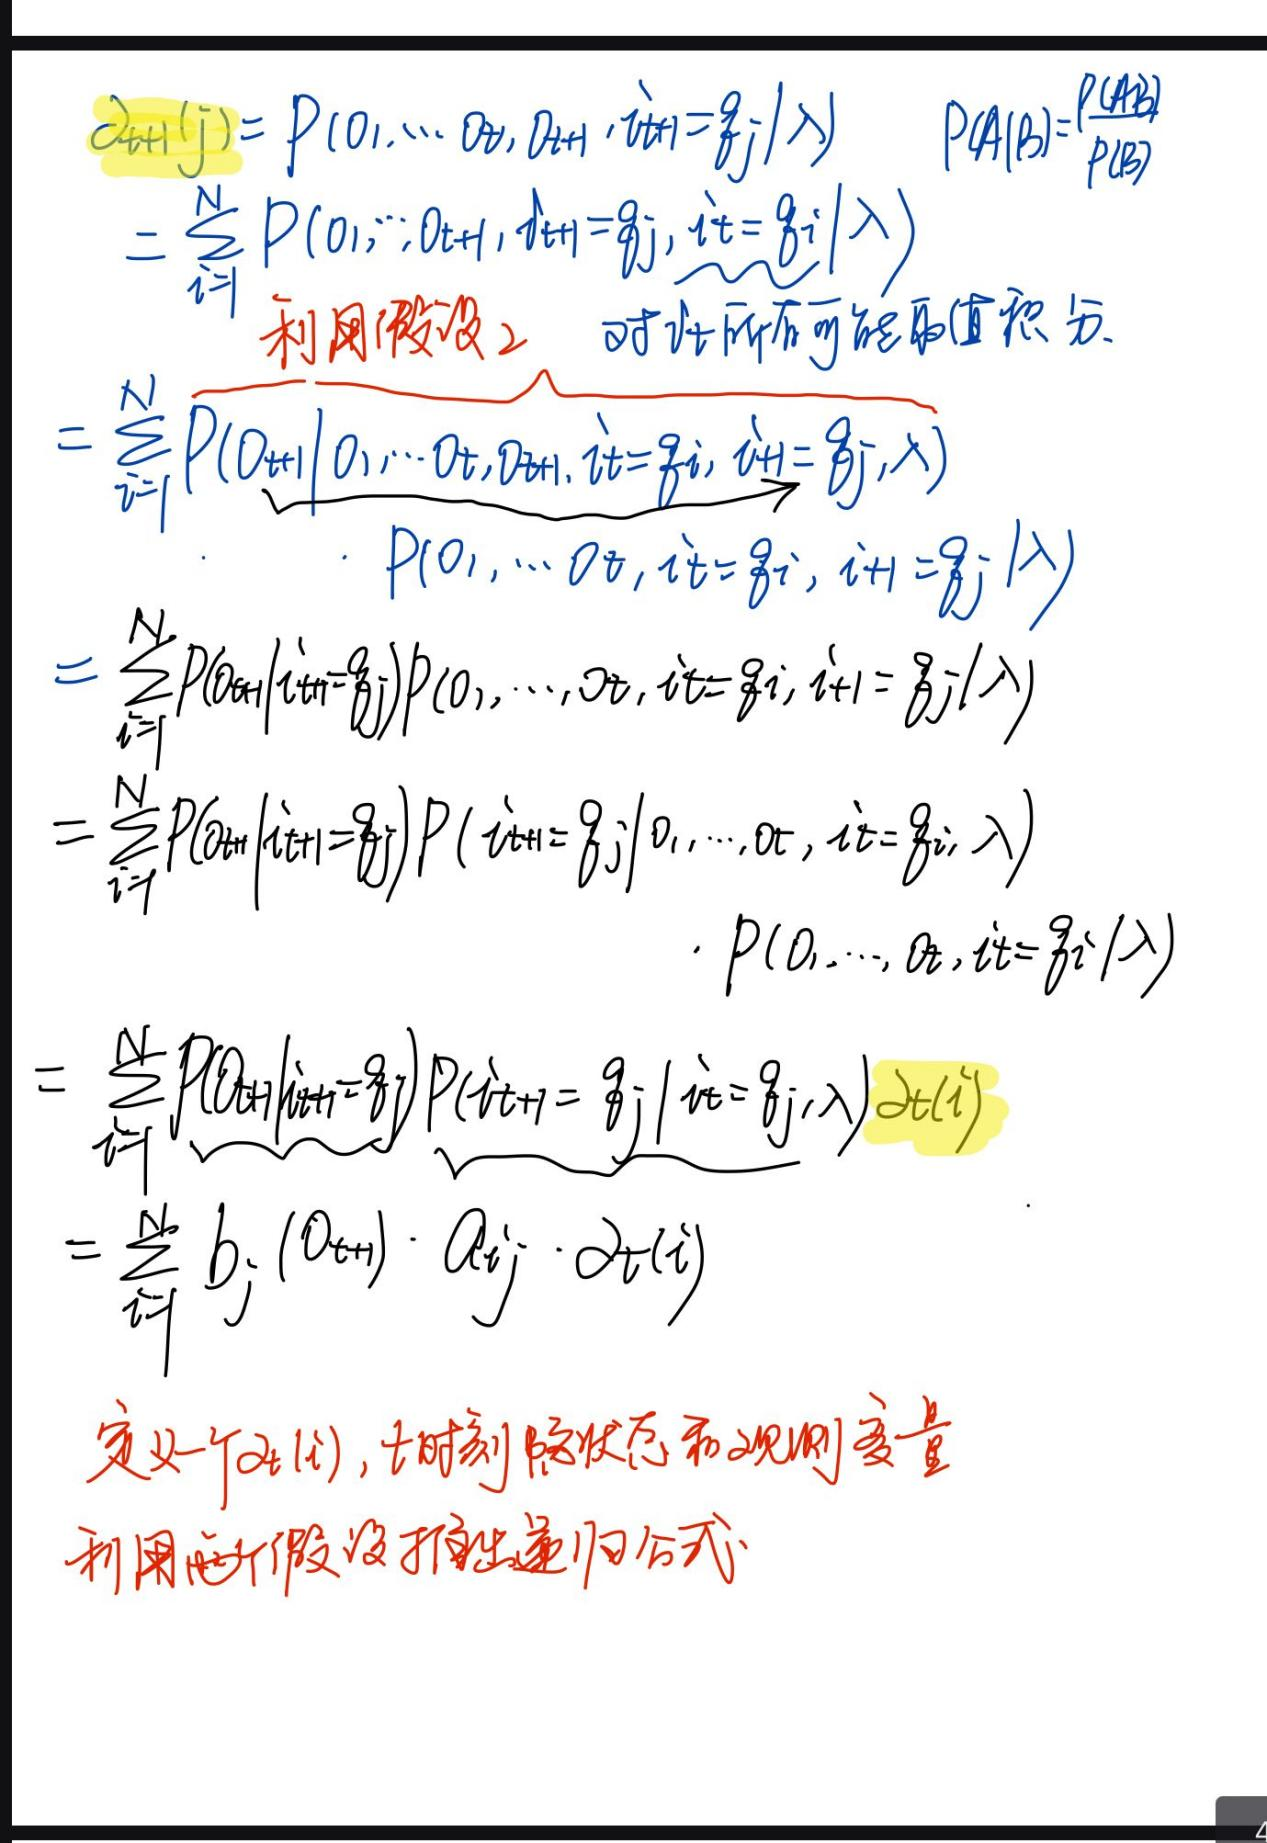 α_{t+1}(j) = P(o_1, … o_t, o_{t+1}, i_{t+1} = q_j | λ)    P(A|B) = P(AB)/P(B)
= Σ_{i=1}^{N} P(o_1, …, o_{t+1}, i_{t+1} = q_j, i_t = q_i | λ)
利用假设2    对 i_t 所有可能取值积分.
= Σ_{i=1}^{N} P(o_{t+1} | o_1, … o_t, o_{t+1}, i_t = q_i, i_{+1} = q_j, λ)
· P(o_1, … o_t, i_t = q_i, i_{+1} = q_j | λ)
= Σ_{i=1}^{N} P(o_{t+1} | i_{t+1} = q_j) P(o_1, …, o_t, i_t = q_i, i_{+1} = q_j | λ)
= Σ_{i=1}^{N} P(o_{t+1} | i_{t+1} = q_j) P(i_{t+1} = q_j | o_1, …, o_t, i_t = q_i, λ)
· P(o_1, …, o_t, i_t = q_i | λ)
= Σ_{i=1}^{N} P(o_{t+1} | i_{t+1} = q_j) P(i_{t+1} = q_j | i_t = q_j, λ) α_t(i)
= Σ_{i=1}^{N} b_j(o_{t+1}) · a_{ij} · α_t(i)
定义一个α_t(i), t时刻隐状态和观测变量
利用两个假设推出递归公式.